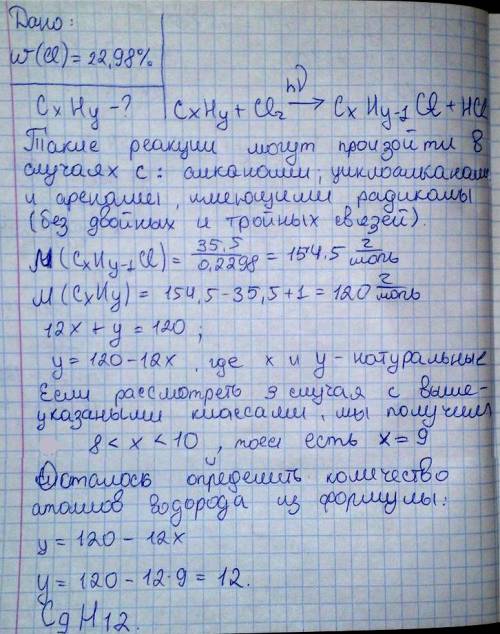 Дано:
w(Cl) = 22,98%
CxHy - ? CxHy + Cl2 hν → CxHy-1Cl + HCl
Такие реакции могут произойти в
случаях с: алканами, циклоалканами
и аренами, имеющими радикалы
(без двойных и тройных связей).
M(CxHy-1Cl) = 35,5/0,2298 = 154,5 г/моль
M(CxHy) = 154,5 - 35,5 + 1 = 120 г/моль
12x + y = 120 ;
y = 120 - 12x , где x и y - натуральные
Если рассмотреть 3 случая с выше-
указаными классами, мы получим
8 < x < 10 , то есть x = 9
Осталось определить количество
атомов водорода из формулы:
y = 120 - 12x
y = 120 - 12·9 = 12.
C9H12.